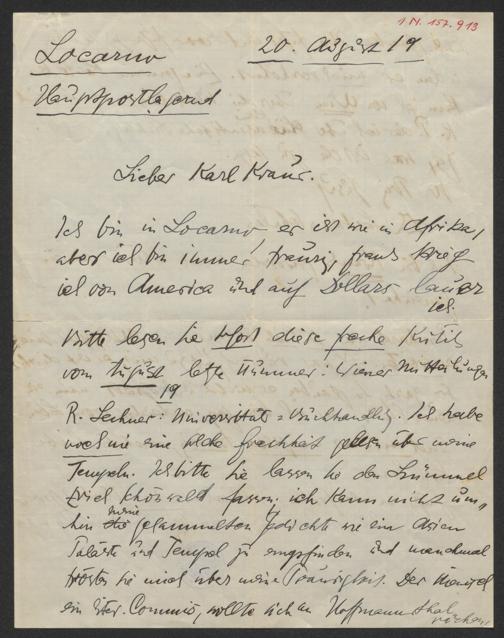 I.N. 157.913
Locarno 20. August 19
Hauptpostlagernd
Lieber Karl Kraus.
Ich bin in Locarno, er ist wie in Afrika,
aber ich bin immer traurig, francs krieg
ich von America und auf Dollars lauer
ich.
Bitte lesen Sie sofort diese freche Kritik
vom August letzte Nummer: Wiener Mitteilungen
19
R. Lechner: Universitäts = Buchhandlg. Ich habe
noch nie eine solche Frechheit gelesen über meine
Tempeln. Ich bitte Sie lassen Sie den Lümmel
Erich Schönwald fassen. ich kann nicht um,
hin meine gesammelten Gedichte wie ein Asien
Paläste und Tempel zu empfinden und manchmal
trösten sie mich über meine Traurigkeit. Der
ein liter. Commis, wollte sich an Hoffmannsthal
rächen,